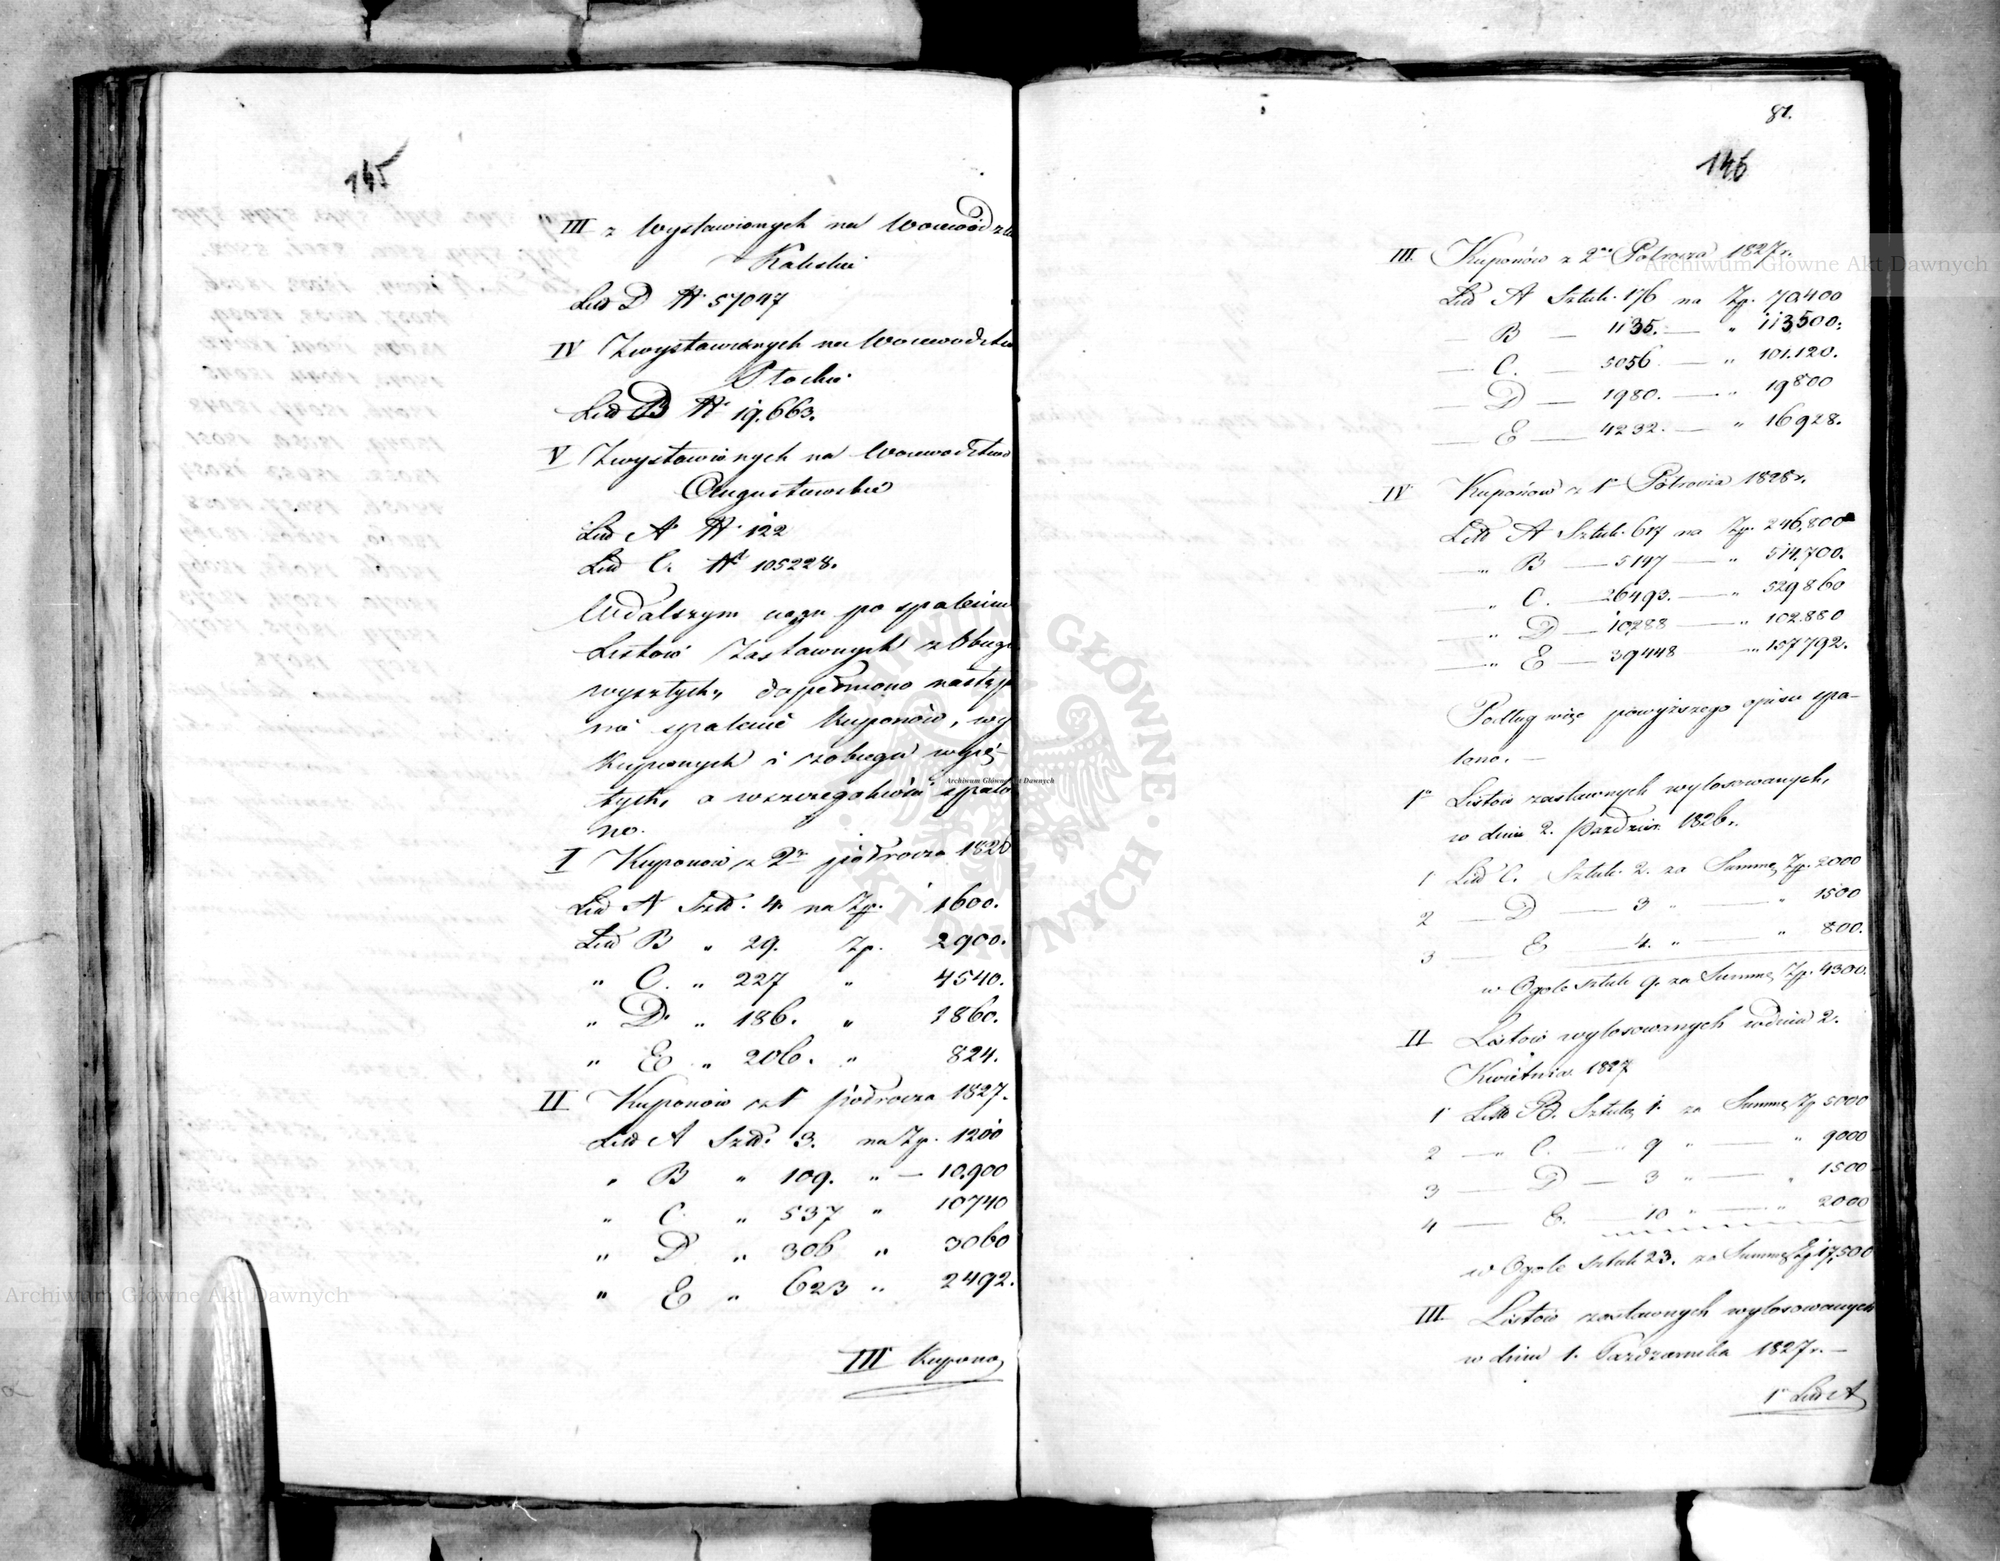 145
III z Wystawionych na Wojewódz
Kaliskie
Litt D No 57047
IV Z wystawionych na Wojewodztw
Płockie
Litt B No 19,663.
V Z wystawionych na Wojewodztwo
Augustowskie
Litt A No 122
Litt C. No 105228.
W dalszym ciągu po spaleniu
Listów Zastawnych z Obiegu
wyszłych, dopełniono następ
nie spalenie Kuponów, wy
kupionych i z obiegu wyję-
tych, a w szczególności spalo
no.
I Kuponów z 2o półrocza 1826
Litt A Sztt. 4. na Zp. 1600.
Litt B " 29. Zp. 2900.
" C. " 227 " 4540.
" D. " 186. " 1860.
" E " 206. " 824.
II Kuponów z 1o półrocza 1827.
Litt A Sztt. 3. na Zp. 1200
" B " 109. " — 10,900
" C. " 537 " 10740
" D " 306 " 3060
" E " 623 " 2492.
III Kupono
81.
146
III. Kuponów z 2go Półrocza 1827 r.
Litt A Sztuk. 176 na Zp. 70,400
— B — 1135. — " 113,500.
— C. — 5056 — " 101.120.
— D — 1980. — " 19800
— E — 4232. — " 16928.
IV Kuponów z 1o Półrocza 1828 r.
Litt A Sztuk. 617 na Zp. 246,800
— " B — 5147 — " 514,700.
— " C. — 26493. — " 529,860
— " D — 10,288 — " 102.880
— " E — 39448 — " 157792.
Podług więc powyższego opisu spa-
lono. —
1o Listów zastawnych wylosowanych,
w dniu 2. Paździer. 1826 r.
1 Litt C. Sztuk. 2. za Summę Zp. 2000
2 — D — 3 " — " 1500
3 — E — 4. " — " 800.
w Ogole sztuk 9. za Summę Zp. 4300.
II Listów wylosowanych w dniu 2.
Kwietnia 1827
1 Litt B. Sztukę 1. za Summę Zp 5000
2 — " C. — " 9 " — " 9000
3 — D — 3 " — " 1500
4 — E. — 10 " — " 2000
w Ogole sztuk 23. za Summę Zp 17,500
III. Listów zastawnych wylosowanych
w dniu 1. Października 1827 r. —
1o Litt A
Archiwum Główne Akt Dawnych
Archiwum Główne Akt Dawnych
Archiwum Główne Akt Dawnych
ARCHIWUM GŁÓWNE AKT DAWNYCH